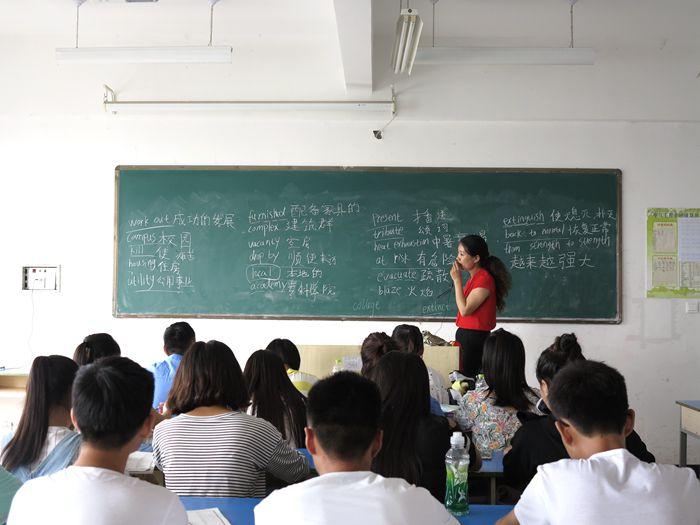 work out 成功的发展
campus 校园
kill 使
housing 住房
utility 公用事业
furnished 配备家具的
complex 建筑群
vacancy 空房
drop by 顺便
local 本地的
academy 专科学院
college
present
tribute 颂词
heat exhaustion 中暑
at risk 有危险
evacuate 疏散
blaze 火焰
extinct
extinguish 使熄灭
back to normal 恢复正常
from strength to strength
越来越强大